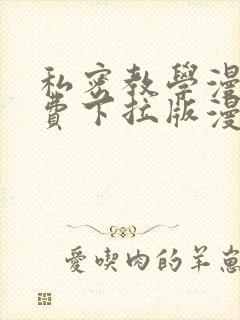 私密教學漫
費下拉版漫
愛喫肉的羊崽